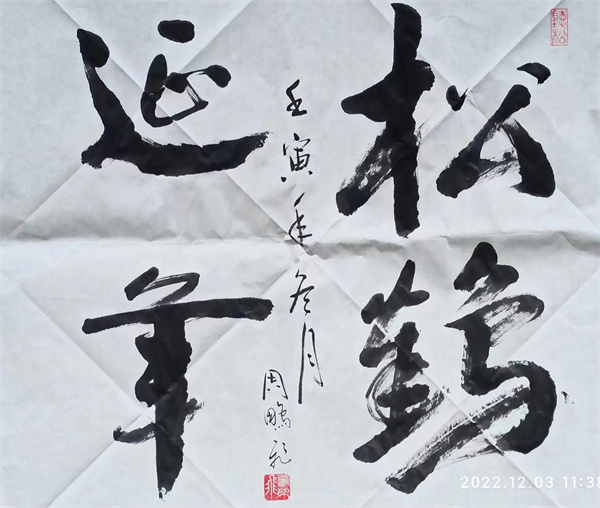 松鶴
延年
壬寅年冬月
周鵬飛
2022.12.03 11:38